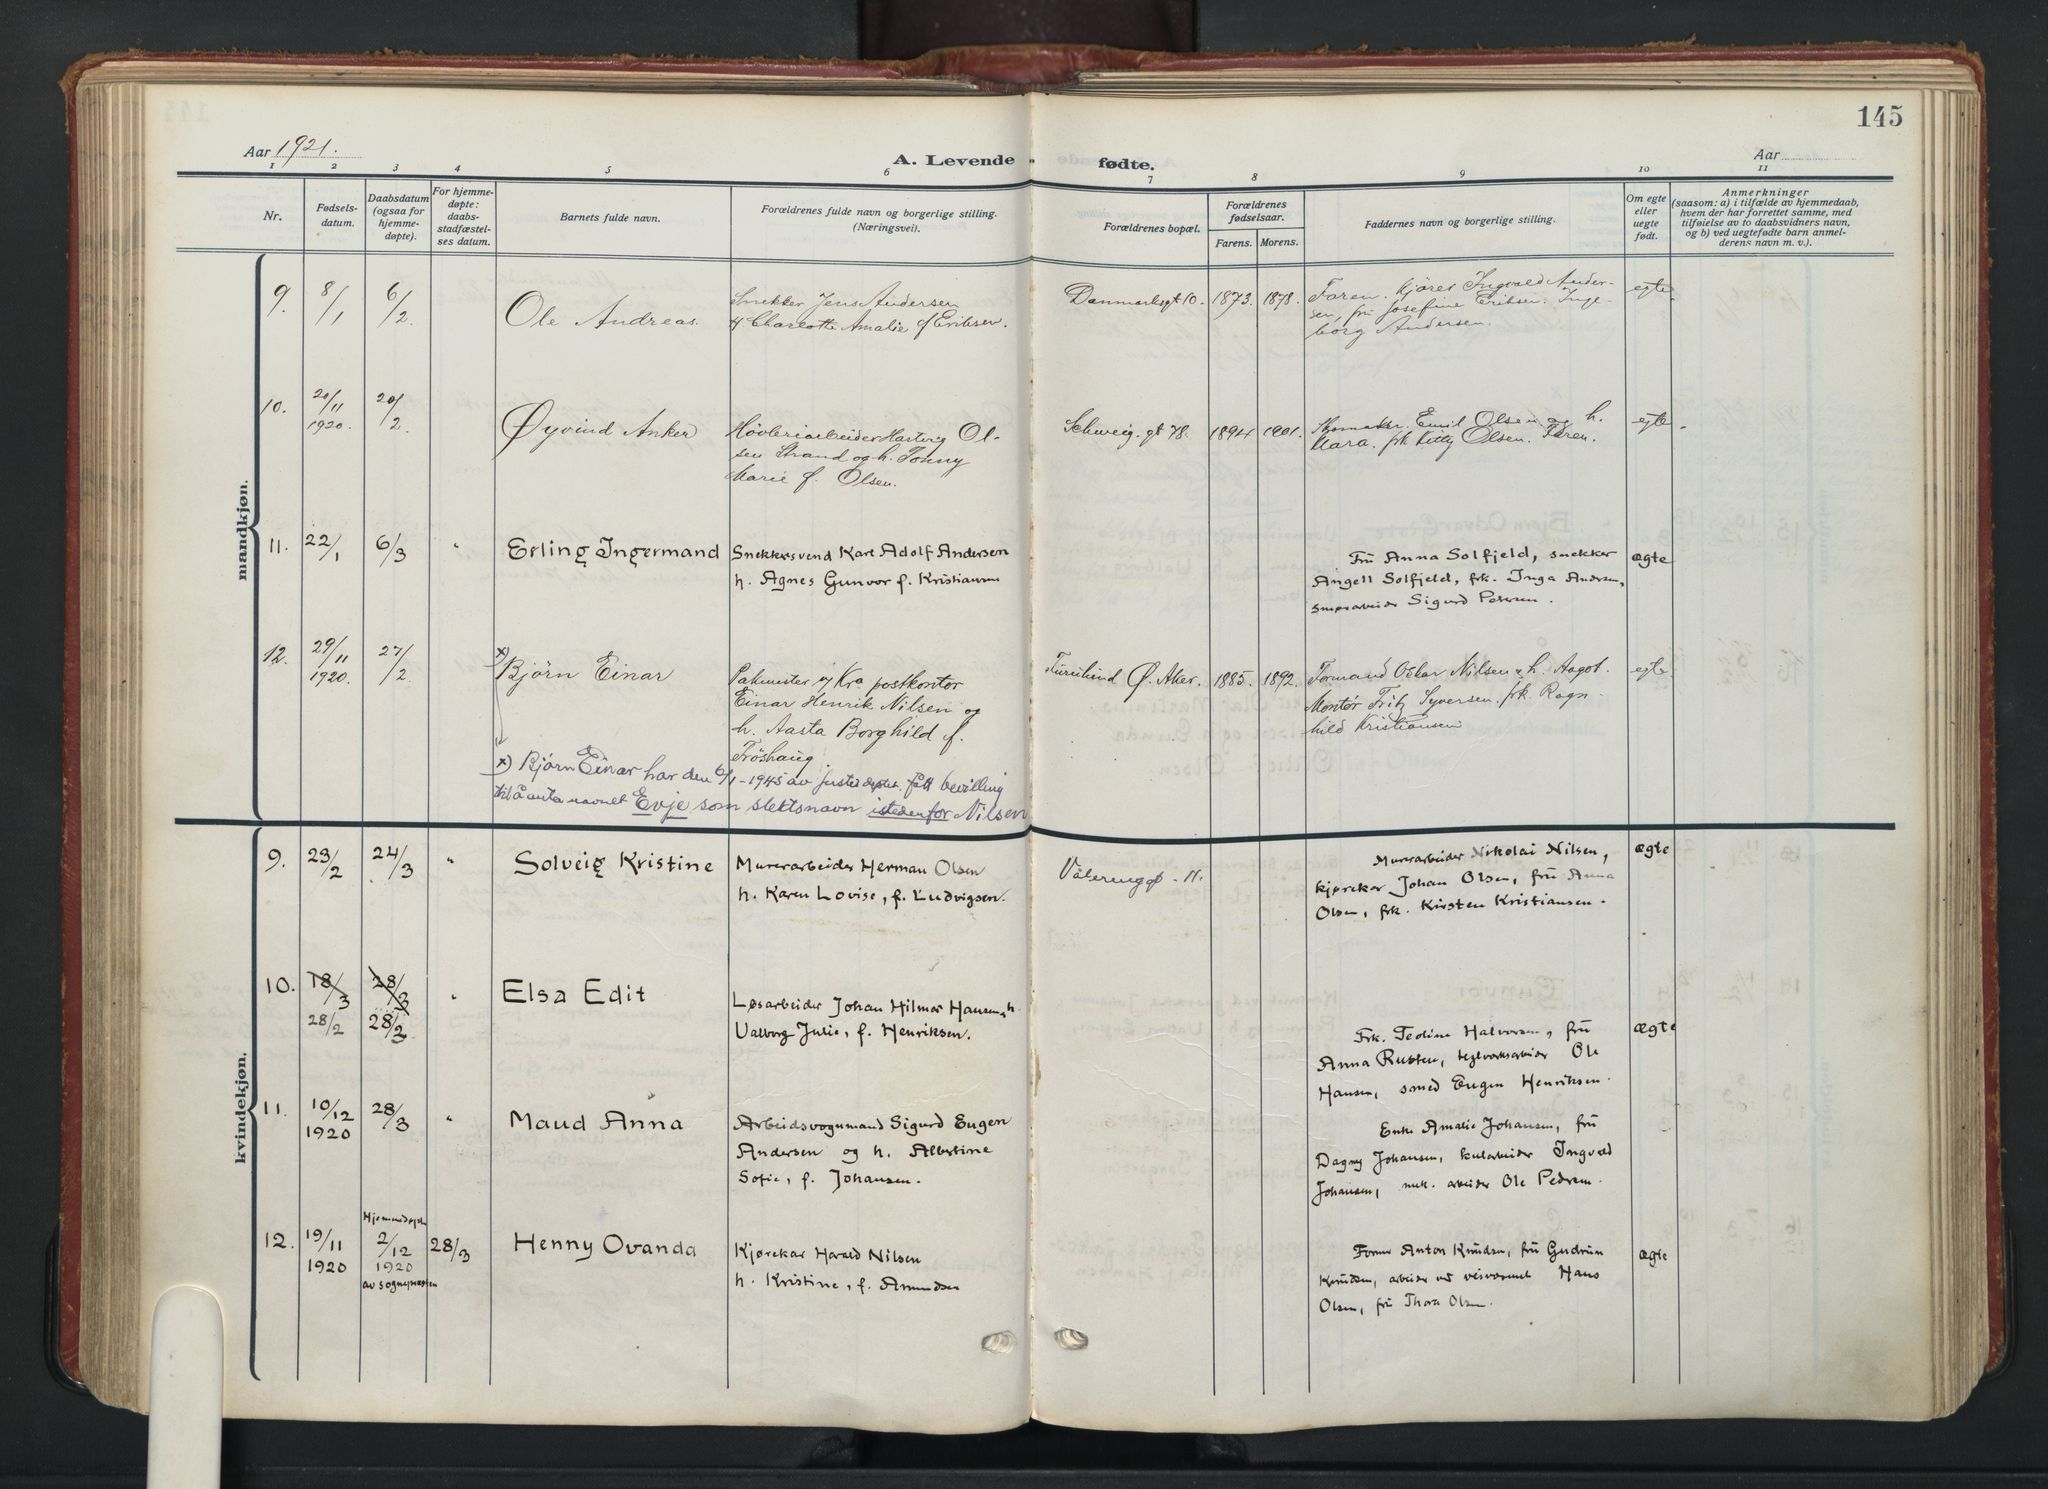 145
Aar 1921.
A. Levende fødte.
Aar
1 2 3 4 5 6 7 8 9 10 11
Nr.
Fødsels-
datum.
Daabsdatum
(ogsaa for
hjemme-
døpte).
For hjemme-
døpte:
daabs-
stadfæstel-
ses datum.
Barnets fulde navn.
Forældrenes fulde navn og borgerlige stilling.
(Næringsvei).
Forældrenes bopæl.
Forældrenes
fødselsaar.
Farens. Morens.
Faddernes navn og borgerlige stilling.
Om egte
eller
uegte
født.
Anmerkninger
(saasom: a) i tilfælde av hjemmedaab,
hvem der har forrettet samme, med
tilføielse av to daabsvidners navn,
og b) ved uegtefødte barn anmel-
derens navn m. v.).
mandkjøn.
9. 8/1 6/2
Ole Andreas.
Snekker Jens Andersen
& Charlotte Amalie f Eriksen.
Danmarksgt 10. 1873. 1878.
Faren. kjører Ingvald Ander-
sen, fru Josefine Eriksen. Inge-
borg Andersen.
egte
10. 20/11 1920. 20/2
Øyvind Anker
Høvleriarbeider Hartvig Ol-
sen Strand og h. Tonny
Marie f. Olsen.
Schweig. gt 78. 1894 1901.
Skomaker Emil Olsen og h.
Klara. frk Kitty Olsen. Faren.
egte
11. 22/1 6/3 "
Erling Ingermand
Snekkersvend Karl Adolf Andersen
h. Agnes Gunvor f. Kristiansen
Fru Anna Solfjeld, snekker
Angell Solfjeld, frk. Inga Andersen,
smørarbeider Sigurd Pedersen.
ægte
12. 29/11 1920. 27/2
x) Bjørn Einar
Pakmester v/ Kra postkontor
Einar Henrik Nilsen og
h. Aasta Borghild f.
Frøshaug.
Furulund Ø. Aker. 1885. 1892.
Formand Oskar Nilsen & h. Aagot.
Montør Fritz Syversen. frk. Ragn-
hild Kristiansen
egte
x) Bjørn Einar har den 6/1-1945 av justisdeptet. fått bevilling
til å anta navnet Evje som slektsnavn istedenfor Nilsen
kvindekjøn.
9. 23/2 24/3 "
Solveig Kristine
Murerarbeider Herman Olsen
h. Karen Lovise, f. Ludvigsen.
Vålerengg - 11.
Murerarbeider Nikolai Nilsen,
kjørekar Johan Olsen, fru Anna
Olsen, frk. Kirsten Kristiansen.
ægte
10. 18/3 28/3 "
28/2 28/3
Elsa Edit
Løsarbeider Johan Hilmar Hansen, h.
Valborg Julie, f. Henriksen.
Frk. Tedine Halvorsen, fru
Anna Rusten, teglverksarbeider Ole
Hansen, smed Eugen Henriksen.
ægte
11. 10/12 1920 28/3 "
Maud Anna
Arbeidsvognmand Sigurd Eugen
Andersen og h. Albertine
Sofie, f. Johansen.
Enke Amalie Johansen, fru
Dagny Johansen, kularbeider Ingvald
Johansen, mek. arbeider Ole Pedersen.
12. 19/11 1920
Hjemmedøpt
2/12
1920
av sognepresten
28/3
Henny Ovanda
Kjørekar Harald Nilsen
h. Kristine, f. Amundsen
Former Anton Knudsen, fru Gudrun
Knudsen, arbeider ved veivæsenet Hans
Olsen, fru Thora Olsen.
ægte